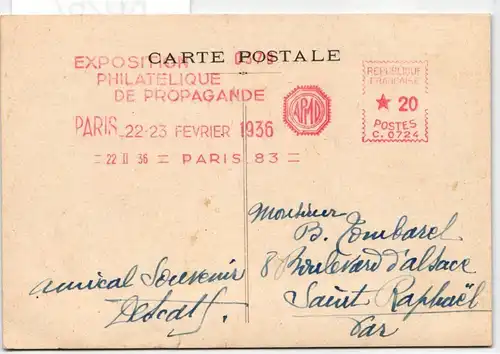 CARTE POSTALE
EXPOSITION
PHILATELIQUE
DE PROPAGANDE
PARIS_22-23 FEVRIER 1936
= 22 II 36 = PARIS 83 =
APMD
REPUBLIQUE
FRANCAISE
★ 20
POSTES
C. 0724
Monsieur
B. Tombarel
8 Boulevard d'alsace
Saint Raphaël
Var
amical Souvenir